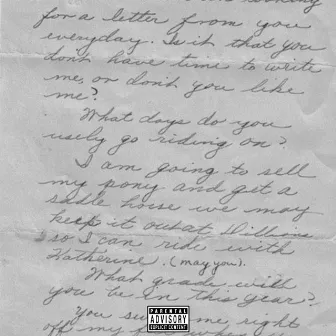 for a letter from you
everyday. Is it that you
don't have time to write
me, or don't you like
me?
What days do you
usely go riding on?
I am going to sell
my pony and get a
sadle horse we may
keep it out at
so I can ride with
Katherine. (may you).
What grade will
you be in this year?
You me right
off my
PARENTAL
ADVISORY
EXPLICIT CONTENT